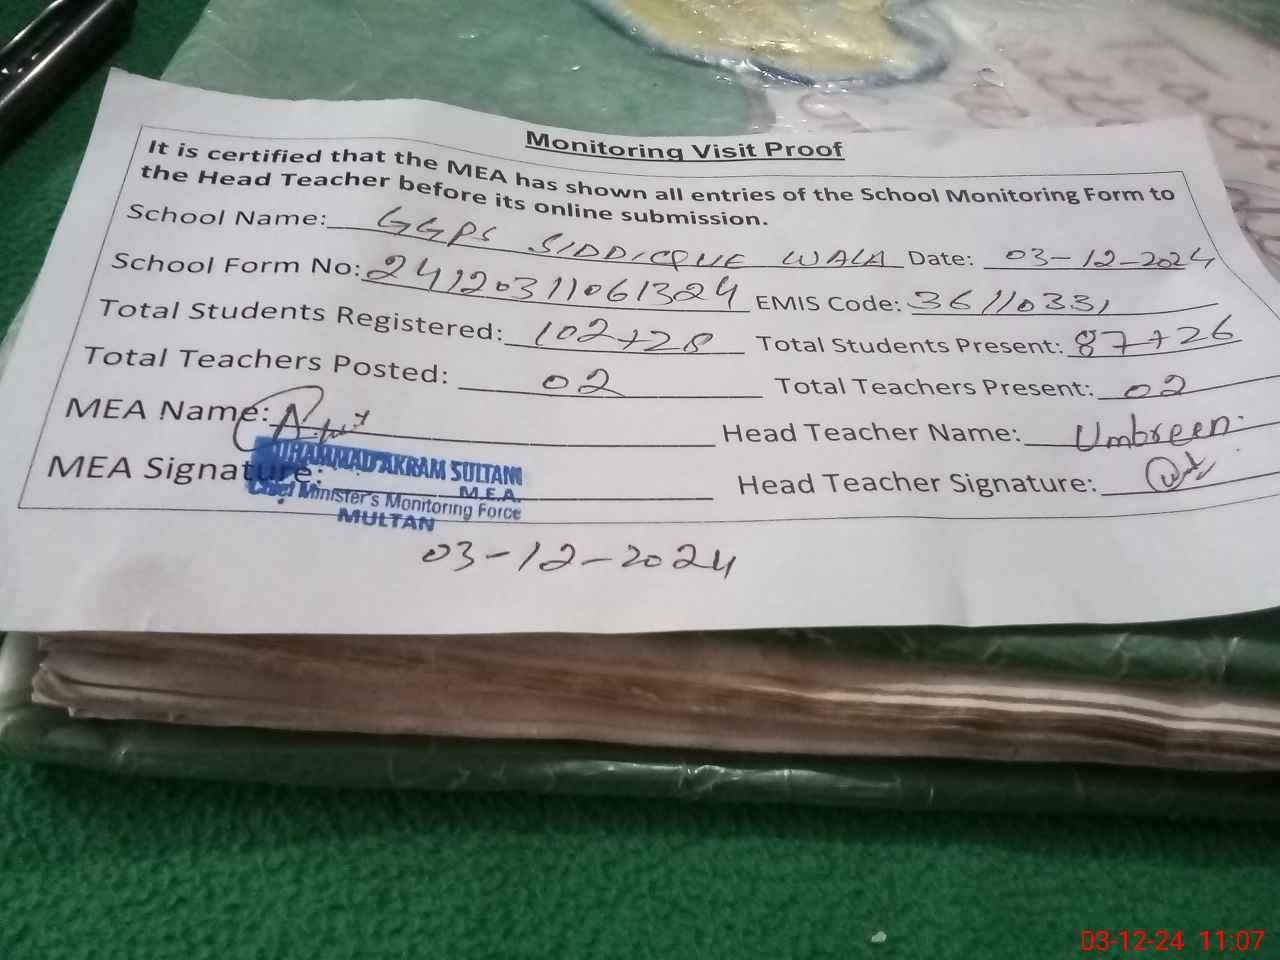 Monitoring Visit Proof
It is certified that the MEA has shown all entries of the School Monitoring Form to
the Head Teacher before its online submission.
School Name: GGPS SIDDIQUE WALA Date: 03-12-2024
School Form No: 24120311061324 EMIS Code: 36110331
Total Students Registered: 102+28 Total Students Present: 87+26
Total Teachers Posted: 02 Total Teachers Present: 02
MEA Name: Head Teacher Name: Umbreen
MUHAMMAD AKRAM SULTANI
MEA Signature: Head Teacher Signature:
M.E.A.
Chief Minister's Monitoring Force
MULTAN
03-12-2024
03-12-24 11:07